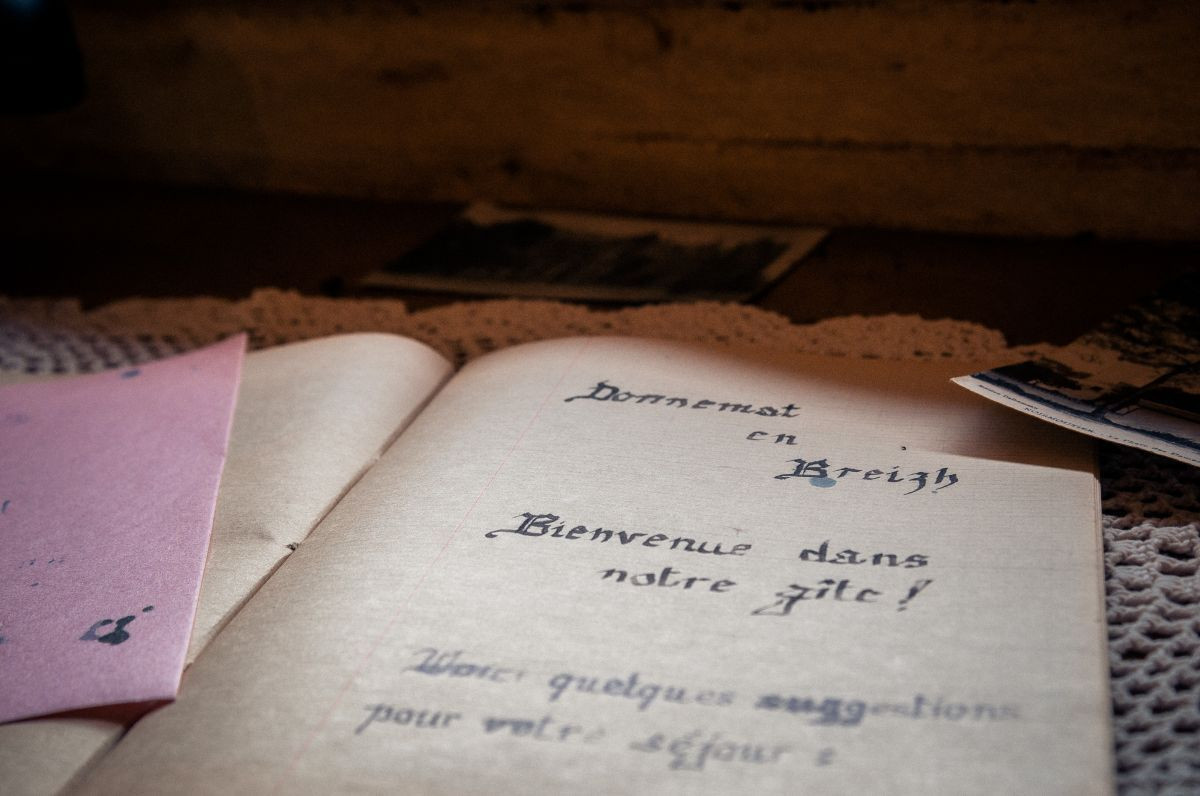 Donnemat
en
Breizh
Bienvenue dans
notre gîte !
Voici quelques suggestions
pour votre séjour :